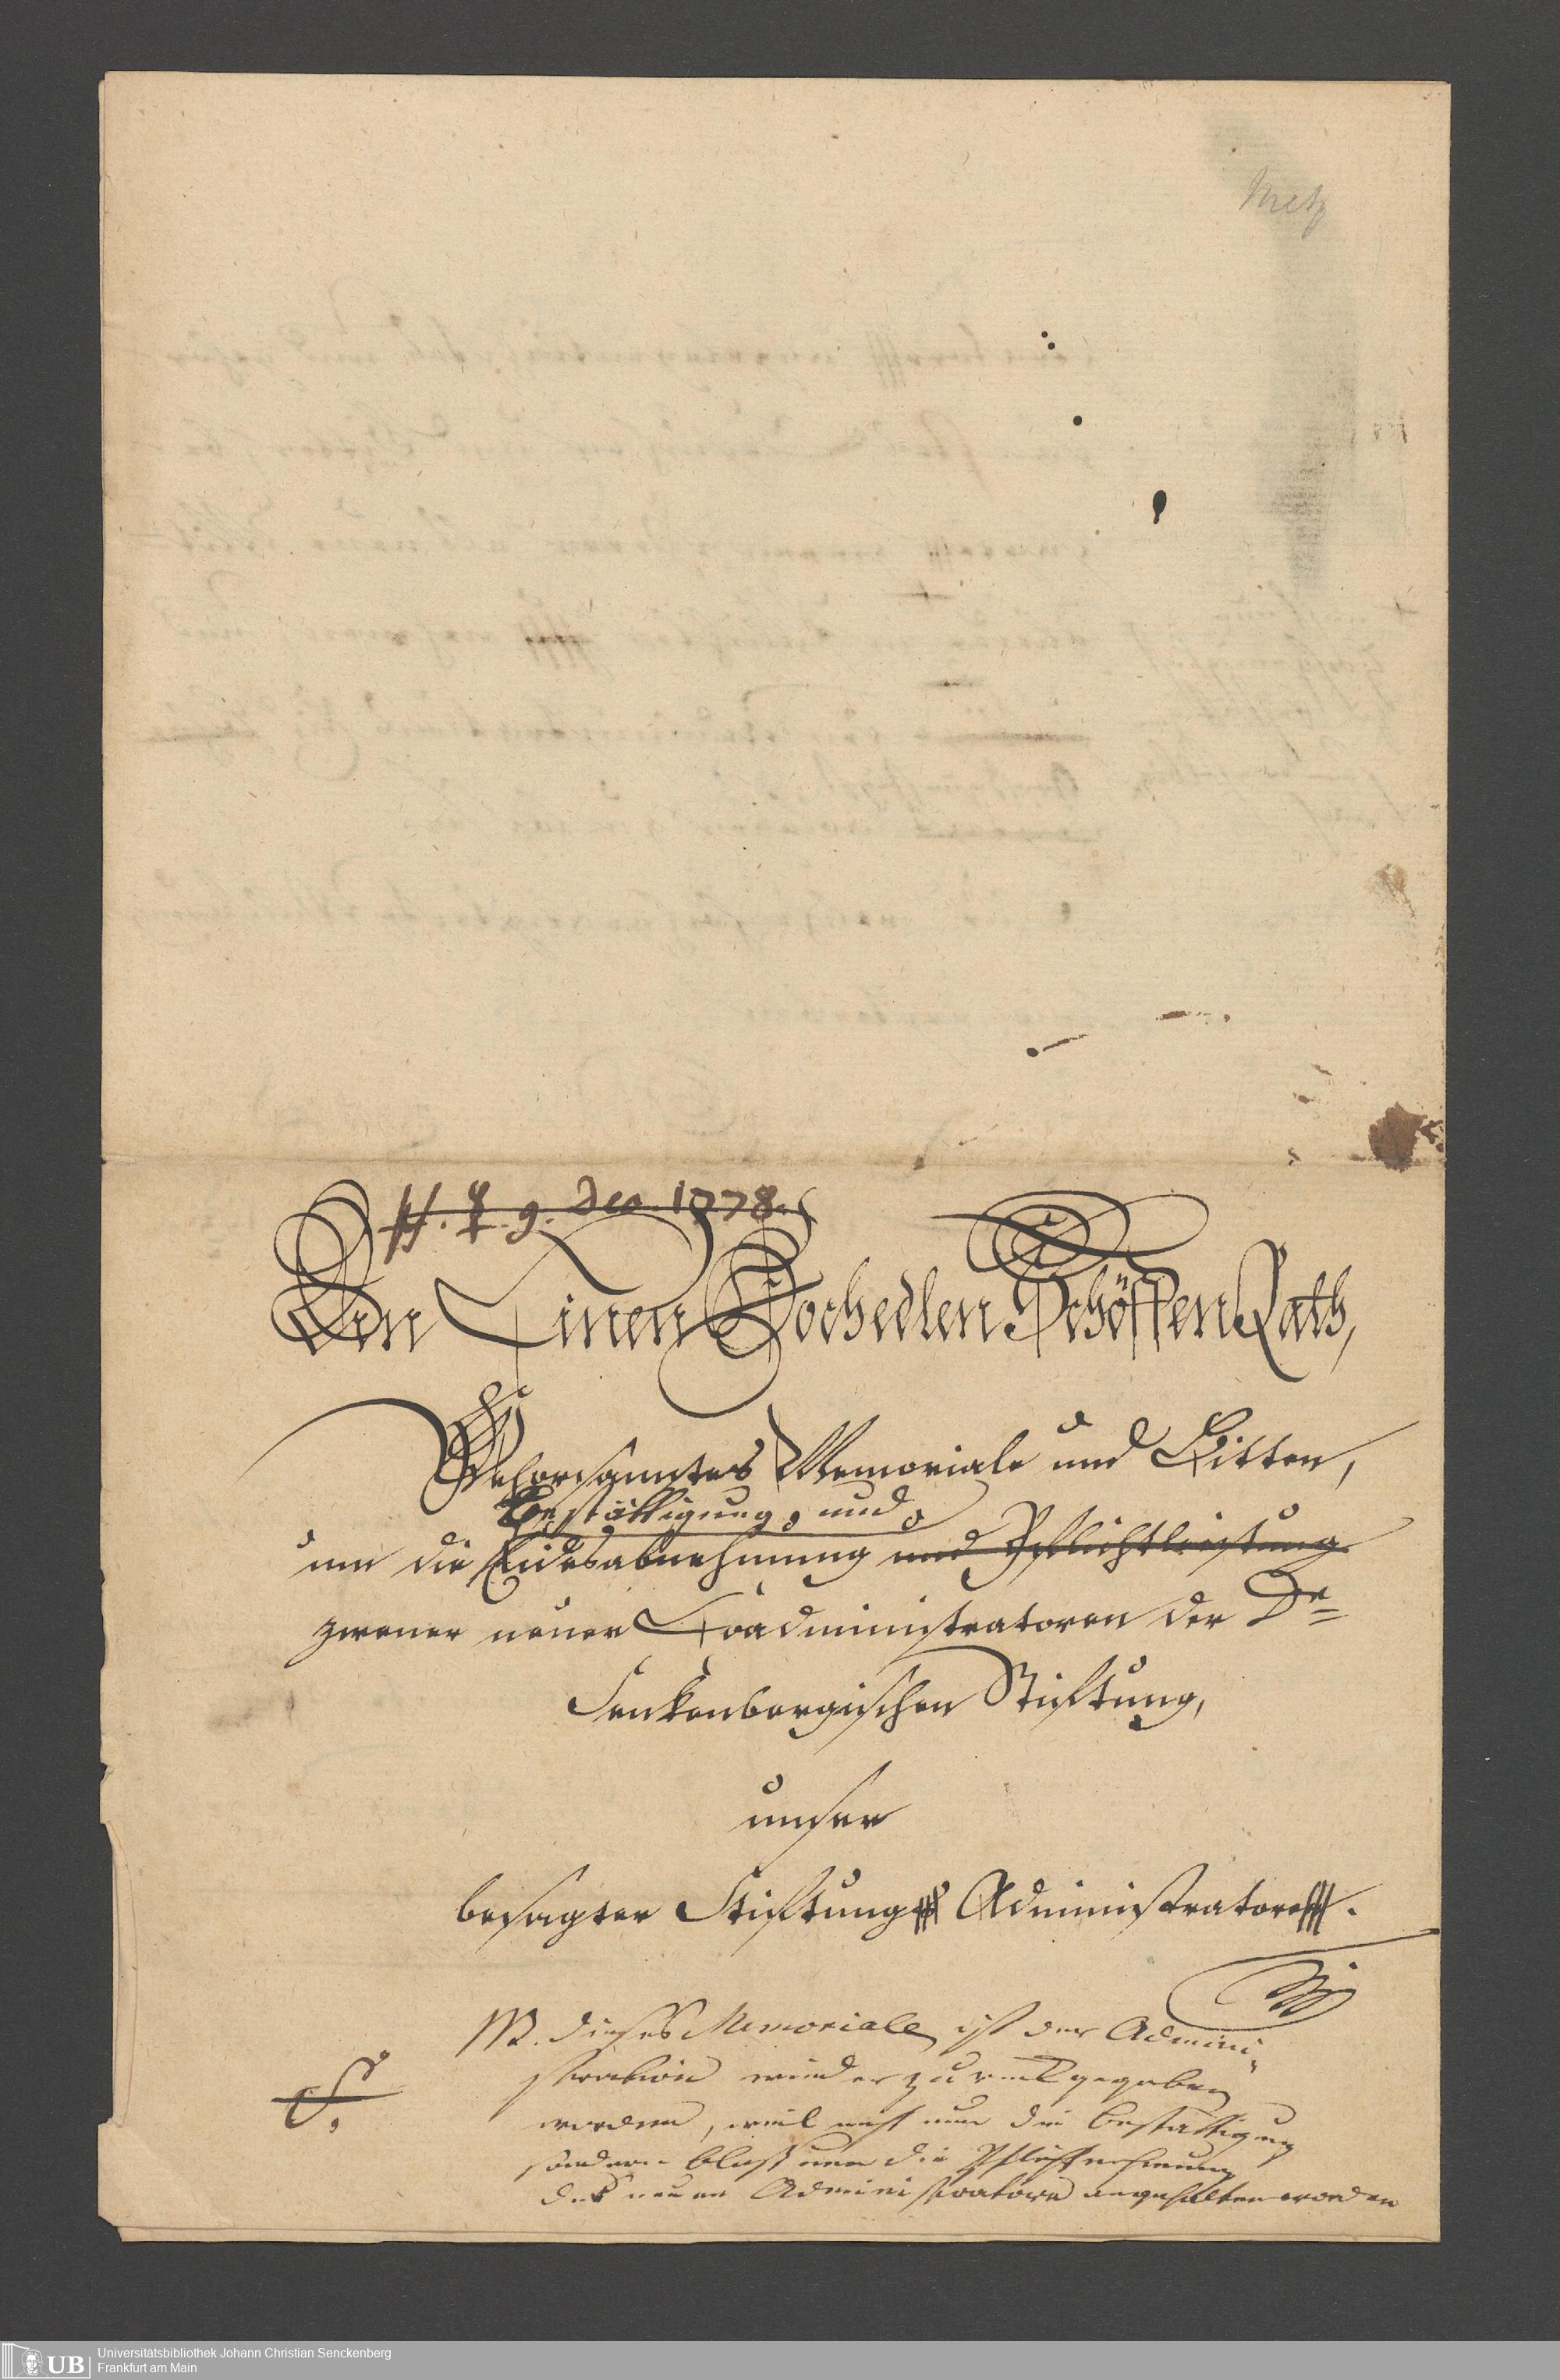 Metz
9. Dec. 1778.
An Einen Hochedlen Schöffen Rath,
Gehorsamstes Memoriale und Bitten,
Bestättigung, und
um die Eidesabnehmung und Pflichtleistung
zweener neuer Coadministratoren der Dr=
Senkenbergischen Stiftung,
unser
besagter Stiftung Administratoren.
NB. dieses Memoriale ist der Admini
stration wieder zuruck gegeben
worden, weil nicht um die Bestättigung
sondern bloß um die Pflichtnehmung
der neuen Administratoren angehalten worden
S.
UB
Universitätsbibliothek Johann Christian Senckenberg
Frankfurt am Main